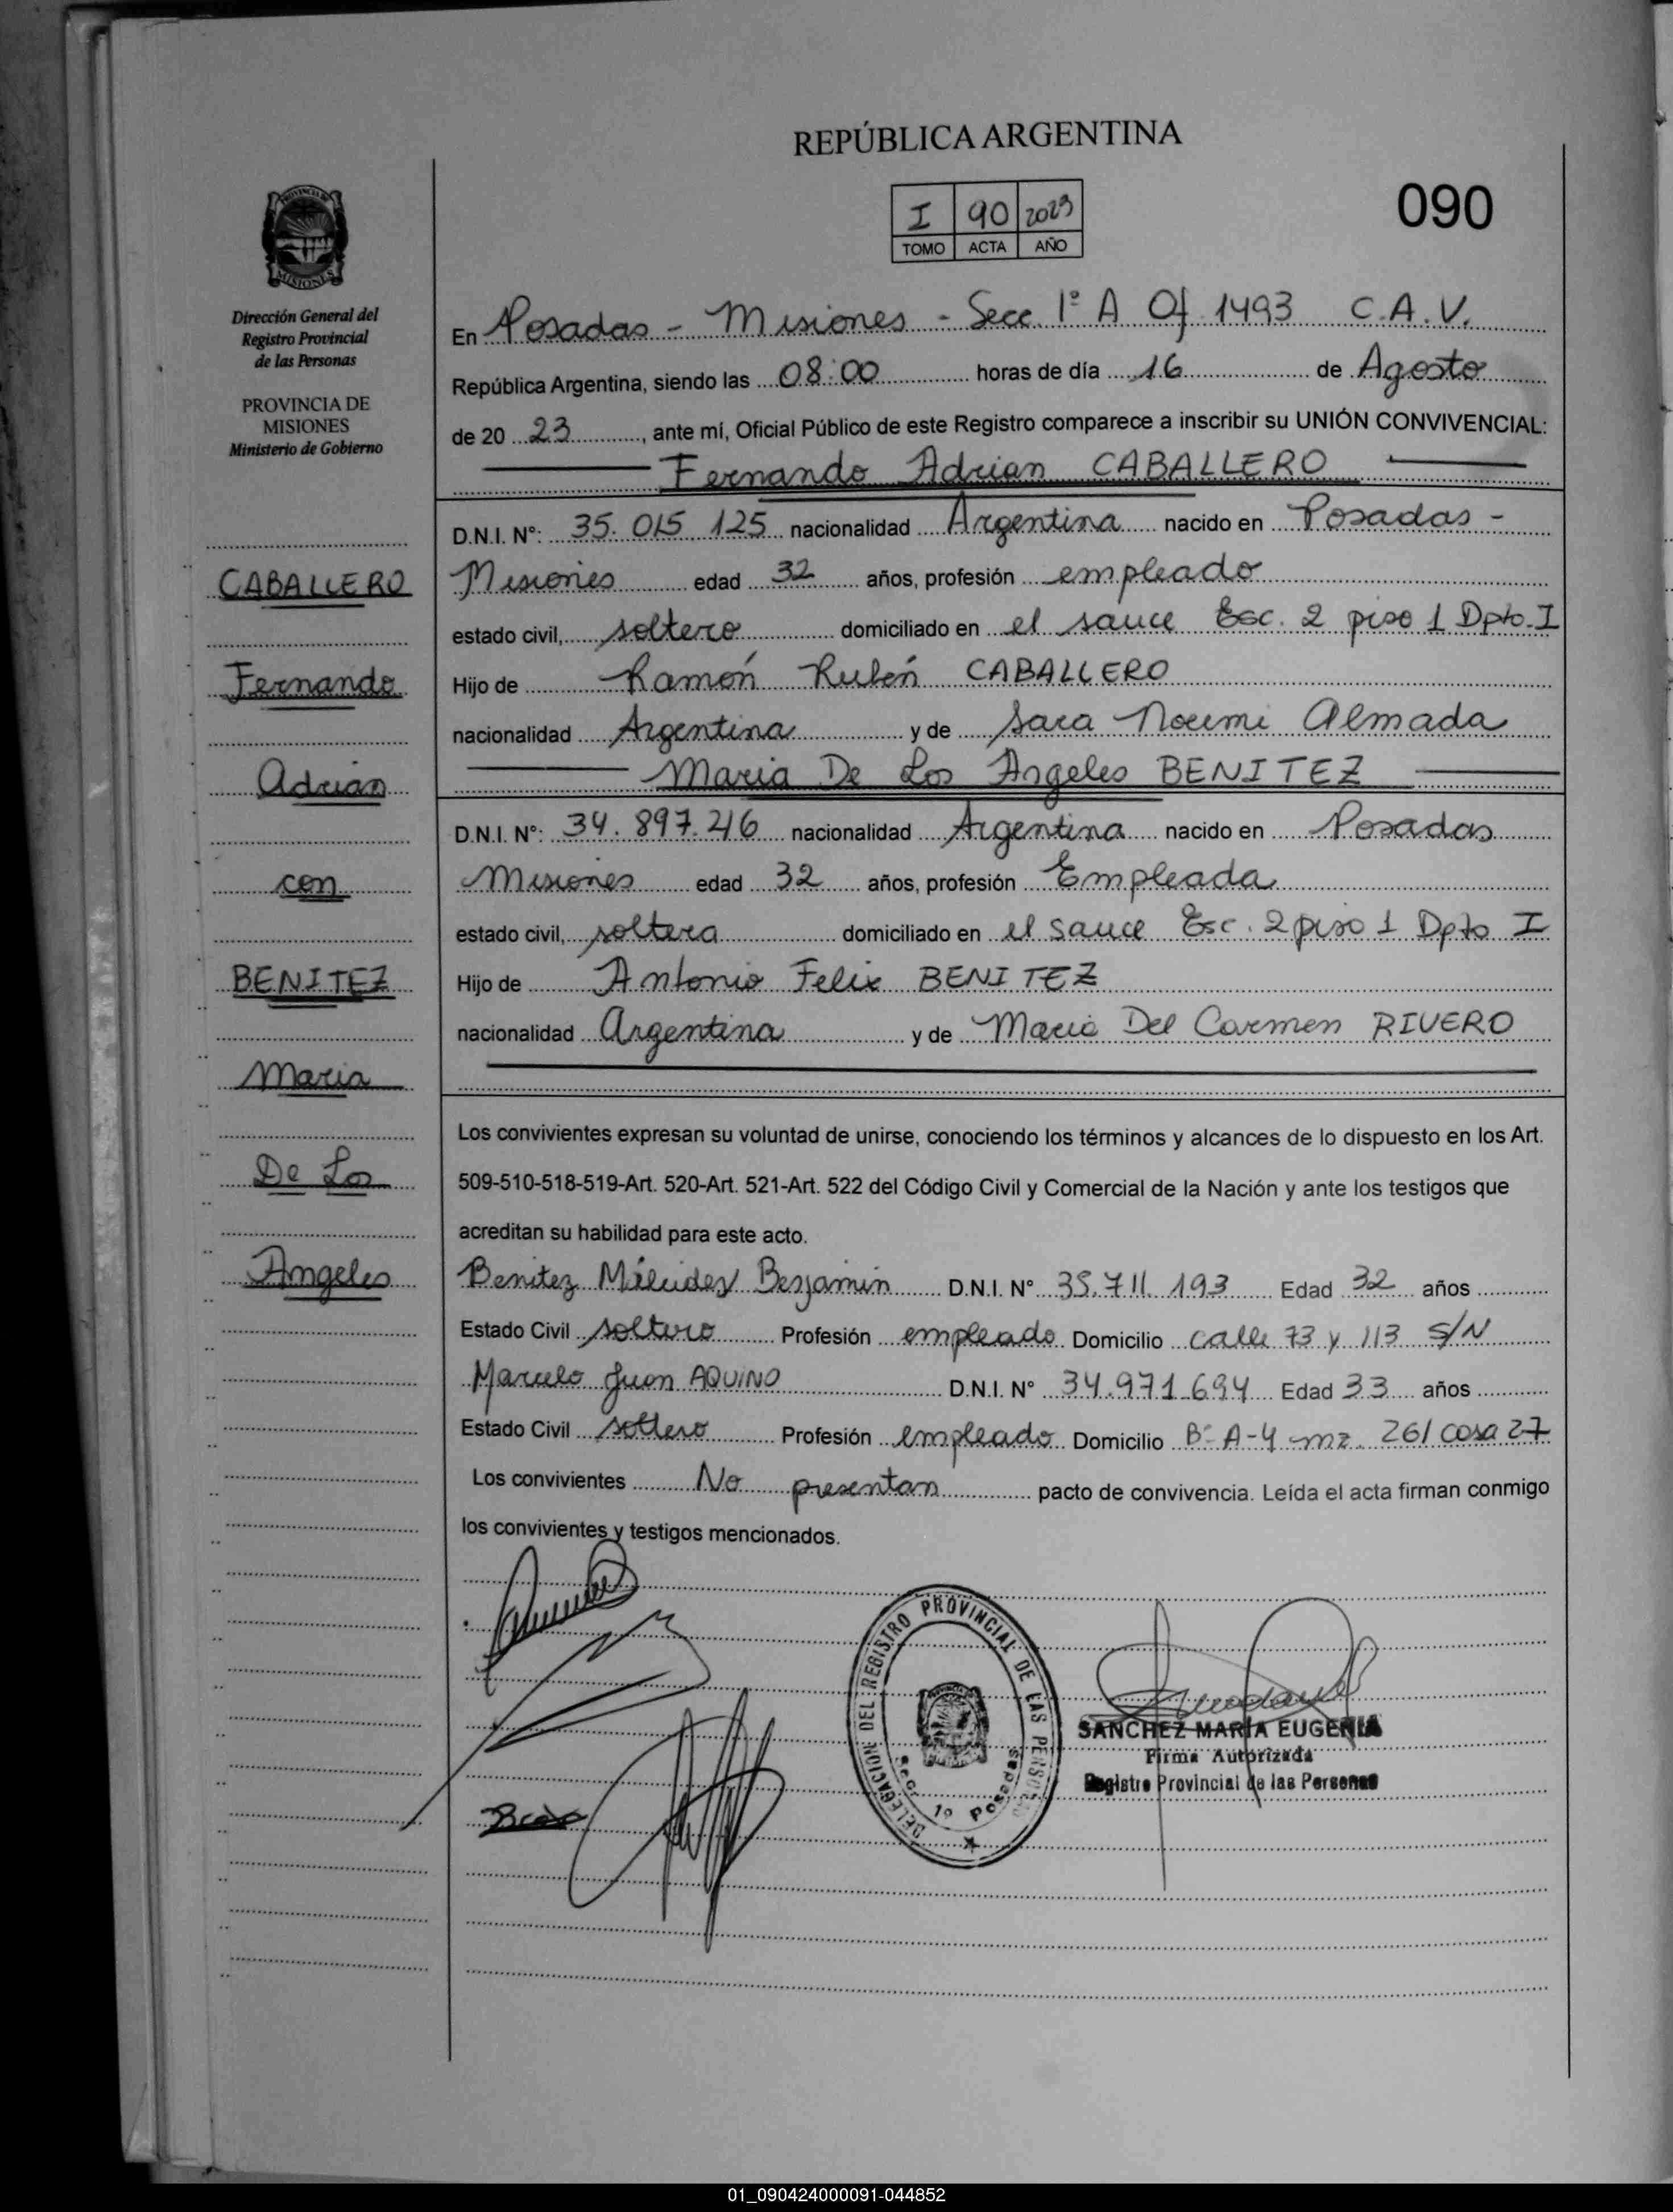 REPÚBLICA ARGENTINA
I 90 2023
TOMO ACTA AÑO
090
PROVINCIA DE
MISIONES
Dirección General del
Registro Provincial
de las Personas
PROVINCIA DE
MISIONES
Ministerio de Gobierno
CABALLERO
Fernando
Adrian
con
BENITEZ
Maria
De Los
Angeles
En Posadas - Misiones - Secc. 1º A Of 1493 C.A.V.
República Argentina, siendo las 08:00 horas de día 16 de Agosto
de 20 23, ante mí, Oficial Público de este Registro comparece a inscribir su UNIÓN CONVIVENCIAL:
Fernando Adrian CABALLERO
D.N.I. Nº: 35.015 125 nacionalidad Argentina nacido en Posadas -
Misiones edad 32 años, profesión empleado
estado civil, soltero domiciliado en el sauce Esc. 2 piso 1 Dpto. I
Hijo de Ramón Rubén CABALLERO
nacionalidad Argentina y de Sara Noemi Almada
Maria De Los Angeles BENITEZ
D.N.I. Nº: 34.897.216 nacionalidad Argentina nacido en Posadas
Misiones edad 32 años, profesión Empleada
estado civil, soltera domiciliado en el sauce Esc. 2 piso 1 Dpto I
Hijo de Antonio Felix BENITEZ
nacionalidad Argentina y de Maria Del Carmen RIVERO
Los convivientes expresan su voluntad de unirse, conociendo los términos y alcances de lo dispuesto en los Art.
509-510-518-519-Art. 520-Art. 521-Art. 522 del Código Civil y Comercial de la Nación y ante los testigos que
acreditan su habilidad para este acto.
Benitez Benjamin D.N.I. Nº 35.711.193 Edad 32 años
Estado Civil soltero Profesión empleado Domicilio calle 73 y 113 S/N
Marcelo Juan AQUINO D.N.I. Nº 34.971.694 Edad 33 años
Estado Civil soltero Profesión empleado Domicilio Bº A-4 mz. 261 casa 27
Los convivientes No presentan pacto de convivencia. Leída el acta firman conmigo
los convivientes y testigos mencionados.
DELEGACION DEL REGISTRO PROVINCIAL DE LAS PERSONAS
Secc. 1º Posadas
SANCHEZ MARÍA EUGENIA
Firma Autorizada
Registro Provincial de las Personas
01_090424000091-044852